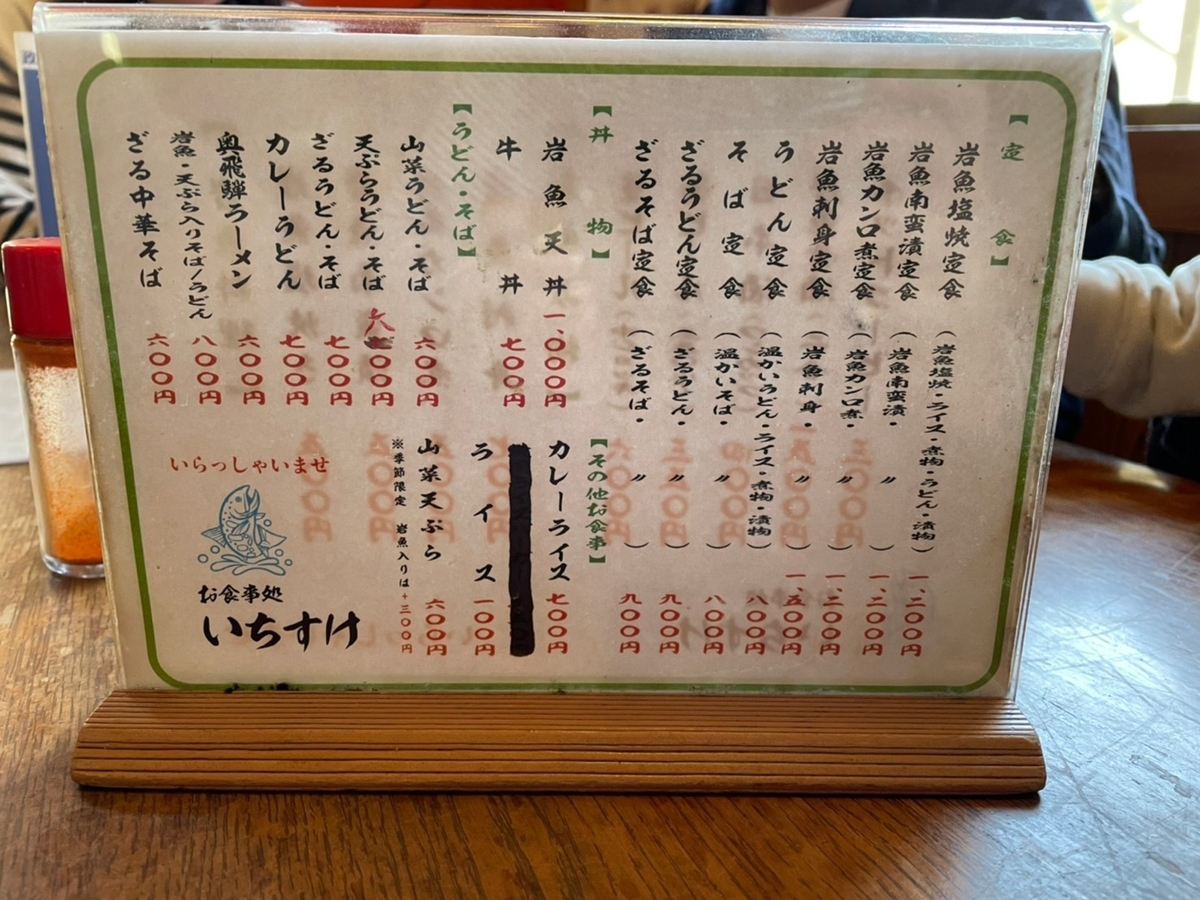 【定食】
岩魚塩焼定食（岩魚塩焼・ライス・煮物・うどん・漬物）一、二〇〇円
岩魚南蛮漬定食（岩魚南蛮漬・〃）一、二〇〇円
岩魚カンロ煮定食（岩魚カンロ煮・〃）一、二〇〇円
岩魚刺身定食（岩魚刺身・〃）一、五〇〇円
うどん定食（温かいうどん・ライス・煮物・漬物）八〇〇円
そば定食（温かいそば・〃）八〇〇円
ざるうどん定食（ざるうどん・〃）九〇〇円
ざるそば定食（ざるそば・〃）九〇〇円
【丼物】
岩魚天丼 一、〇〇〇円
牛丼 七〇〇円
【うどん・そば】
山菜うどん・そば 六〇〇円
天ぷらうどん・そば 八〇〇円
ざるうどん・そば 七〇〇円
カレーうどん 七〇〇円
奥飛騨ラーメン 六〇〇円
岩魚・天ぷら入りそば/うどん 八〇〇円
ざる中華そば 六〇〇円
【その他お食事】
カレーライス 七〇〇円
ライス 一〇〇円
山菜天ぷら 六〇〇円
※季節限定 岩魚入りは+三〇〇円
いらっしゃいませ
お食事処
いちすけ